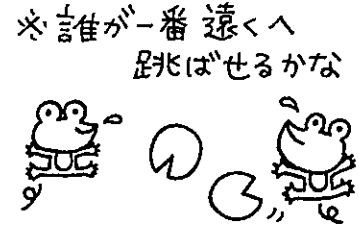 ※誰が一番遠くへ
跳ばせるかな